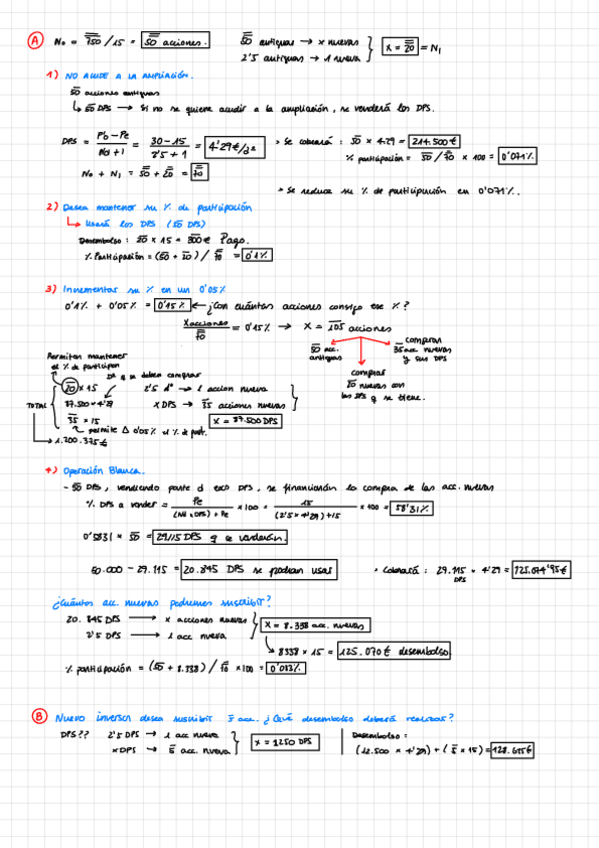 A N₀ = 750/15 = 50 acciones. 50 antiguas → x nuevas x = 20 = N₁
2'5 antiguas → 1 nueva
1) NO ACUDE A LA AMPLIACIÓN.
50 acciones antiguas
↳ 50 DPS → Si no se quiere acudir a la ampliación, se venderá los DPS.
DPS = (Pb - Pe)/(Nd + 1) = (30 - 15)/(2'5 + 1) = 4'29€/d˙ > Se cobrará : 50 × 4.29 = 214.500€
% participación = 50/70 × 100 = 0'071%
N₀ + N₁ = 50 + 20 = 70
> Se reduce su % de participación en 0'071%.
2) Desea mantener su % de participación
↳ Usará los DPS (50 DPS)
Desembolso : 20 × 15 = 300€ Pago.
% Participación = (50 + 20) / 70 = 0'1%
3) Incrementar su % en un 0'05%
0'1% + 0'05% = 0'15% ← ¿Con cuántas acciones consigo ese %?
x acciones/70 = 0'15% → x = 105 acciones
50 acc. antiguas
comprar 20 nuevas con los DPS q se tiene.
comprar 35 acc nuevas y sus DPS
Permiten mantener el % de participon
20 × 15 DR q se deben comprar 2'5 d˙ → 1 accion nueva
TOTAL 87.500 × 4'29 x DPS → 35 acciones nuevas
35 × 15 x = 87.500 DPS
permite Δ 0'05% el % de part.
→ 1.200.375€
4) Operación Blanca.
- 50 DPS, vendiendo parte d esos DPS, se financiarán la compra de las acc. nuevas
% DPS a vender = Pe/((Nd × DPS) + Pe) × 100 = 15/((2'5 × 4'29) + 15) × 100 = 58'31%
0'5831 × 50 = 29.115 DPS q se venderán.
50.000 - 29.115 = 20.845 DPS se podran usar > Cobrará : 29.115 DPS × 4'29 = 125.074'95€
¿Cuántos acc. nuevas podremos suscribir?
20.845 DPS → x acciones nuevas x = 8.338 acc. nuevas
2'5 DPS → 1 acc nueva
↳ 8338 × 15 = 125.070€ desembolso.
% participación = (50 + 8.338) / 70 × 100 = 0'083%
B Nuevo inversor desea suscribir 5 acc. ¿Qué desembolso deberá realizar?
DPS?? 2'5 DPS → 1 acc nueva x = 1250 DPS Desembolso :
x DPS → 5 acc. nueva (12.500 × 4'29) + (5 × 15) = 128.625€